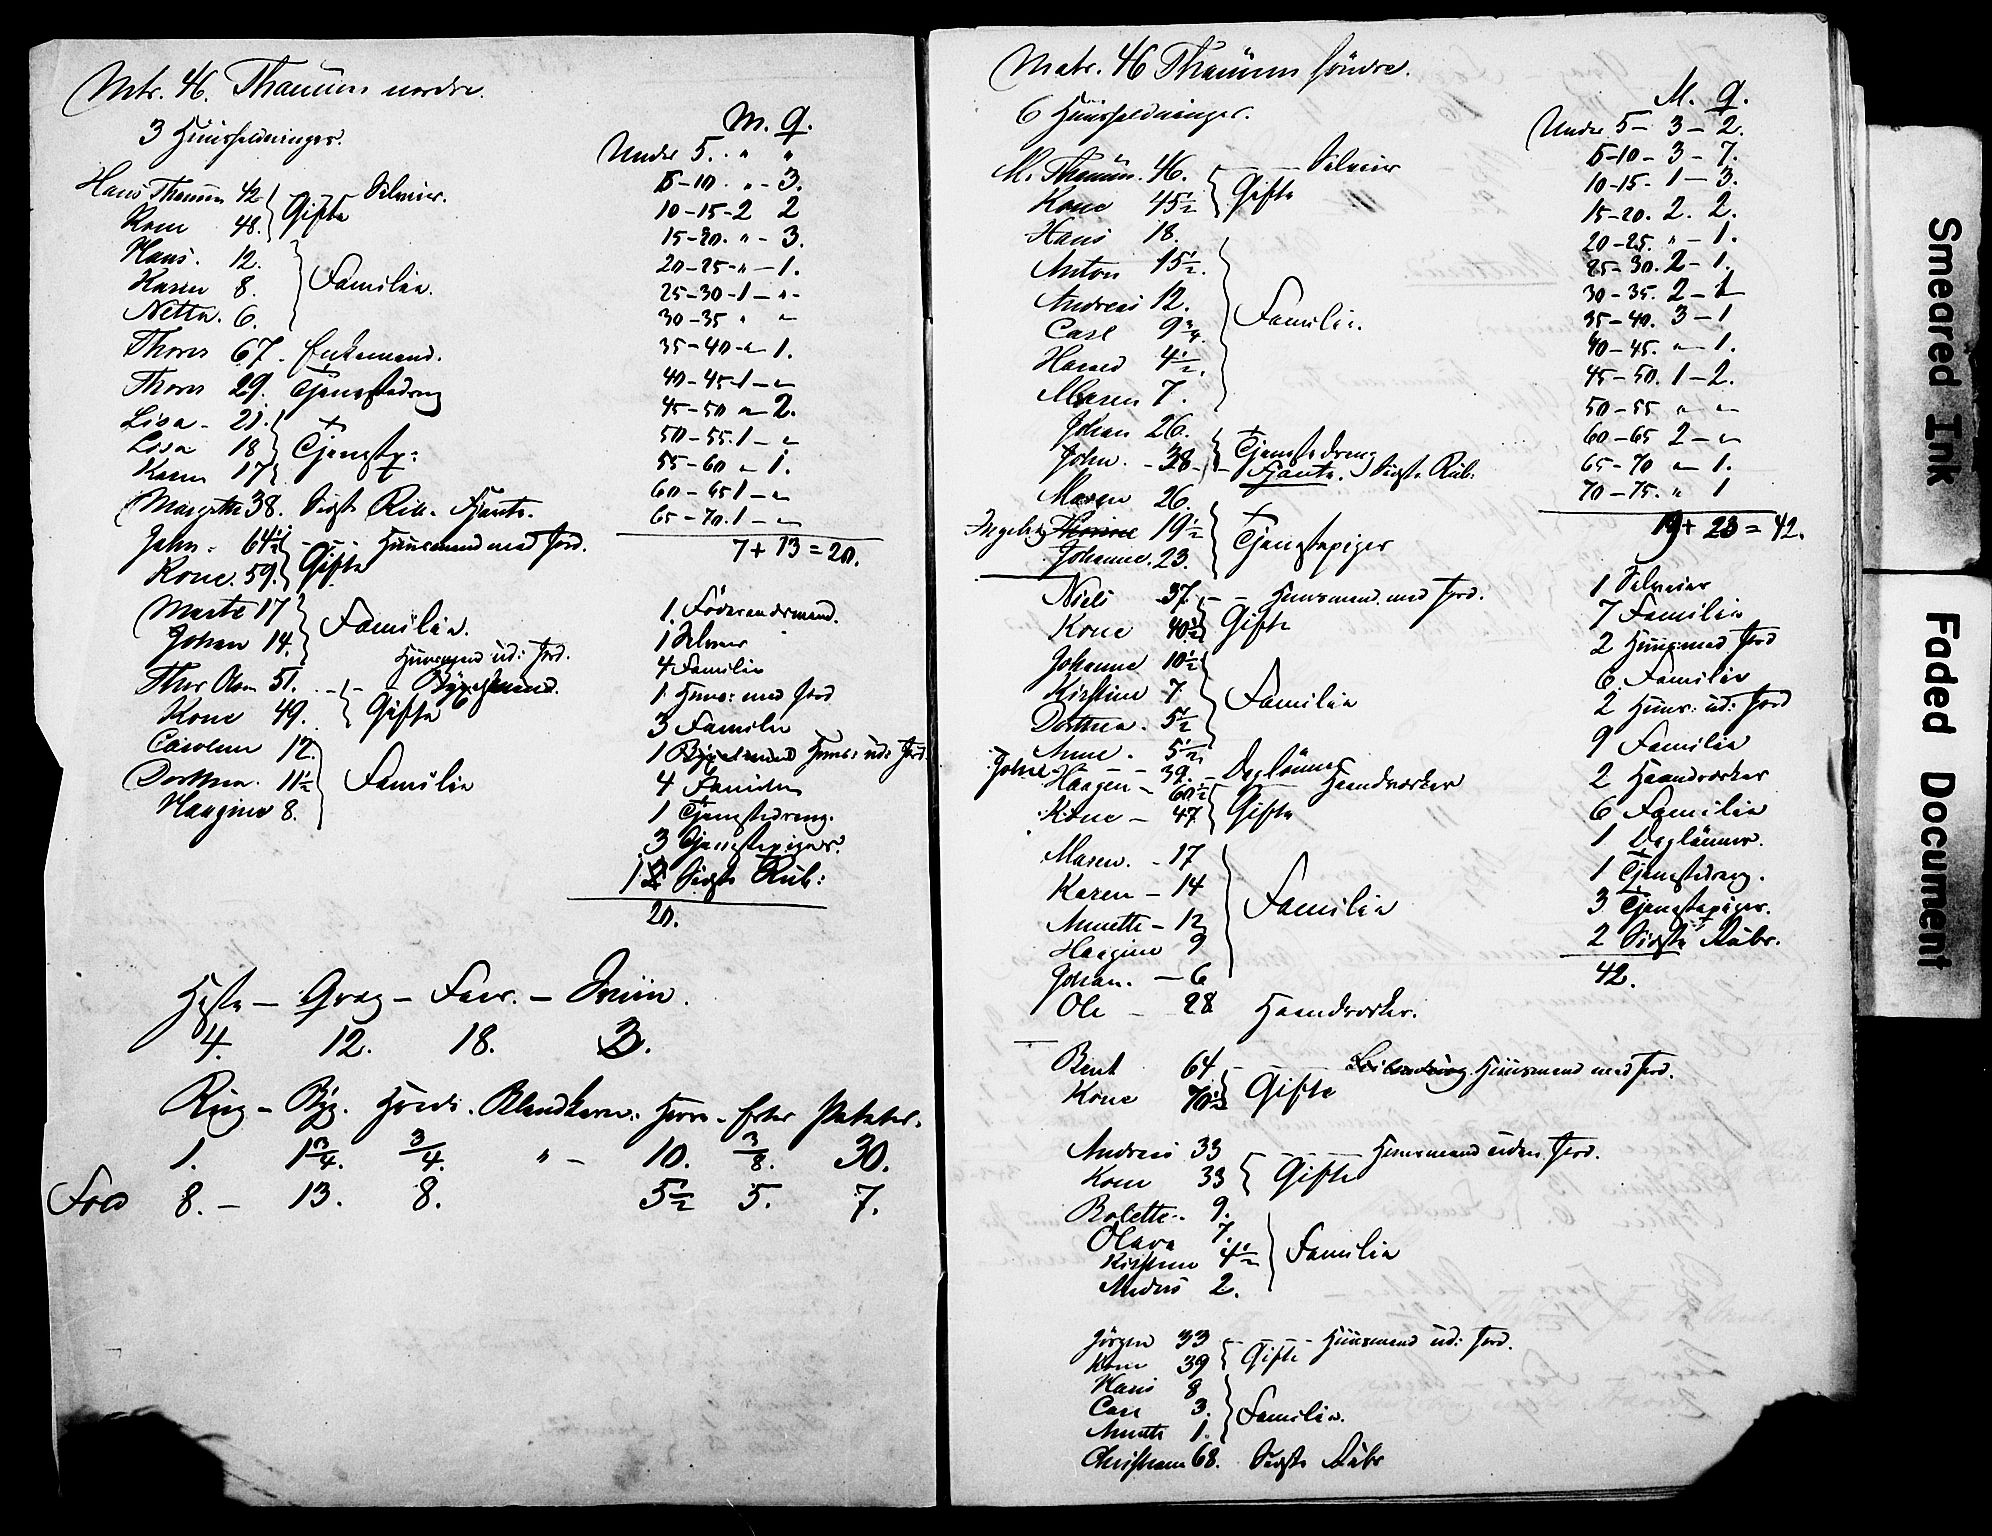 Mtr. 46. Thamun nordre.
3 Huusholdninger.
M. Q.
Under 5. " "
5-10 . " - 3.
10-15 - 2 2
15-20. " - 3.
20-25 - " - 1.
25-30 - 1 - "
30-35 " "
35-40 - " 1.
40-45 - 1 - "
45-50 " 2.
50-55. 1 - "
55-60 " 1.
60-65 1 - "
65-70. 1 - "
7 + 13 = 20.
Hans Thamun 42 Gifte Selveier.
Kone 48.
Hans. 12.
Karen 8. Familie.
Netta. 6.
Thores 67. Enkemand.
Thores 29. Tjenestedreng
Lisa - 21.
Lisa 18 Tjenestp:
Karen 17
Margrethe 38. Sidste Rub. Fjante.
John - 64½ - - - Huusmand med Jord.
Kone. 59. Gifte
Marte 17
Johan 14. Familie.
Huusmend ud: Jord.
Thor Olsen 51.
Kone 49. Gifte
Caroline 12.
Dorthea. 11½ Familie
Haagine 8.
1 Føderaadsmand.
1 Selveier
4 Familie
1 Huus: med Jord
3 Familie
1 Huus: ud: Jord.
4 Familie
1 Tjenestedreng.
3 Tjenestepiger.
1 Sidste Rub:
20.
Heste - Qvæg - Faar. - Sviin.
4. 12. 18. 3.
Rug - Byg. Hvede. Blandkorn. Havre - Erter Poteter.
1. 1¾. ¾. " - 10. ⅜. 30.
Fold 8. - 13. 8. 5½ 5. 7.
Matr. 46 Thamun søndre.
6 Huusholdninger.
M. Q.
Under 5 - 3 - 2.
5-10 - 3 - 7.
10-15 - 1 - 3.
15-20. 2. 2.
20-25. " - 1.
25-30. 2 - 1.
30-35. 2 - 1
35-40. 3 - 1
40-45. " - 1.
45-50. 1 - 2.
50-55 " "
60-65 2 - "
65-70 " 1.
70-75. " 1
19 + 23 = 42.
M. Thamun. 46. - - - Selveier
Kone 45½ Gifte
Hans 18.
Anton 15½.
Andreas 12.
Carl 9¾ Familie.
Harald 4½.
Maren 7.
Johan 26. Tjenestedreng
John. - 38 - - Fjante. Sidste Rub:
Maren 26.
Ingeb. 19½ Tjenestepiger
Johanne. 23.
Niels 37. - - Huusmand. med Jord.
Kone 40½ Gifte
Johanne 10½
Kirstine 7 Familie
Dorthea. 5½
Anne. 5½
39. - Daglönner
Haagen - 60½ Haandverker
Kone - 47 Gifte
Maren. - 17
Karen - 14
Annette - 12 Familie
Haagine 9
Johan. - 6
Ole - 28 Haandverker.
Bent 64 - - Huusmand med Jord.
Kone 70½ Gifte
Andreas 33 - - - Huusmand uden Jord.
Kone 33 Gifte
Bolette - 9.
Olava 7. Familie
Kirstine 4½
Anders 2.
Jörgen 33 - Gifte - Huusmand ud: Jord.
Kone 39
Hans 8
Carl 3. Familie.
Annette 1.
Christiane 68. Sidste Rubr
1 Selveier
7 Familie
2 Huusmed Jord
6 Familie
2 Huus: ud: Jord
9 Familie
2 Haandverker
6 Familie
1 Daglönner.
1 Tjenestedreng.
3 Tjenestepiger.
2 Sidste Rubr.
42.
Smeared Ink
Faded Document